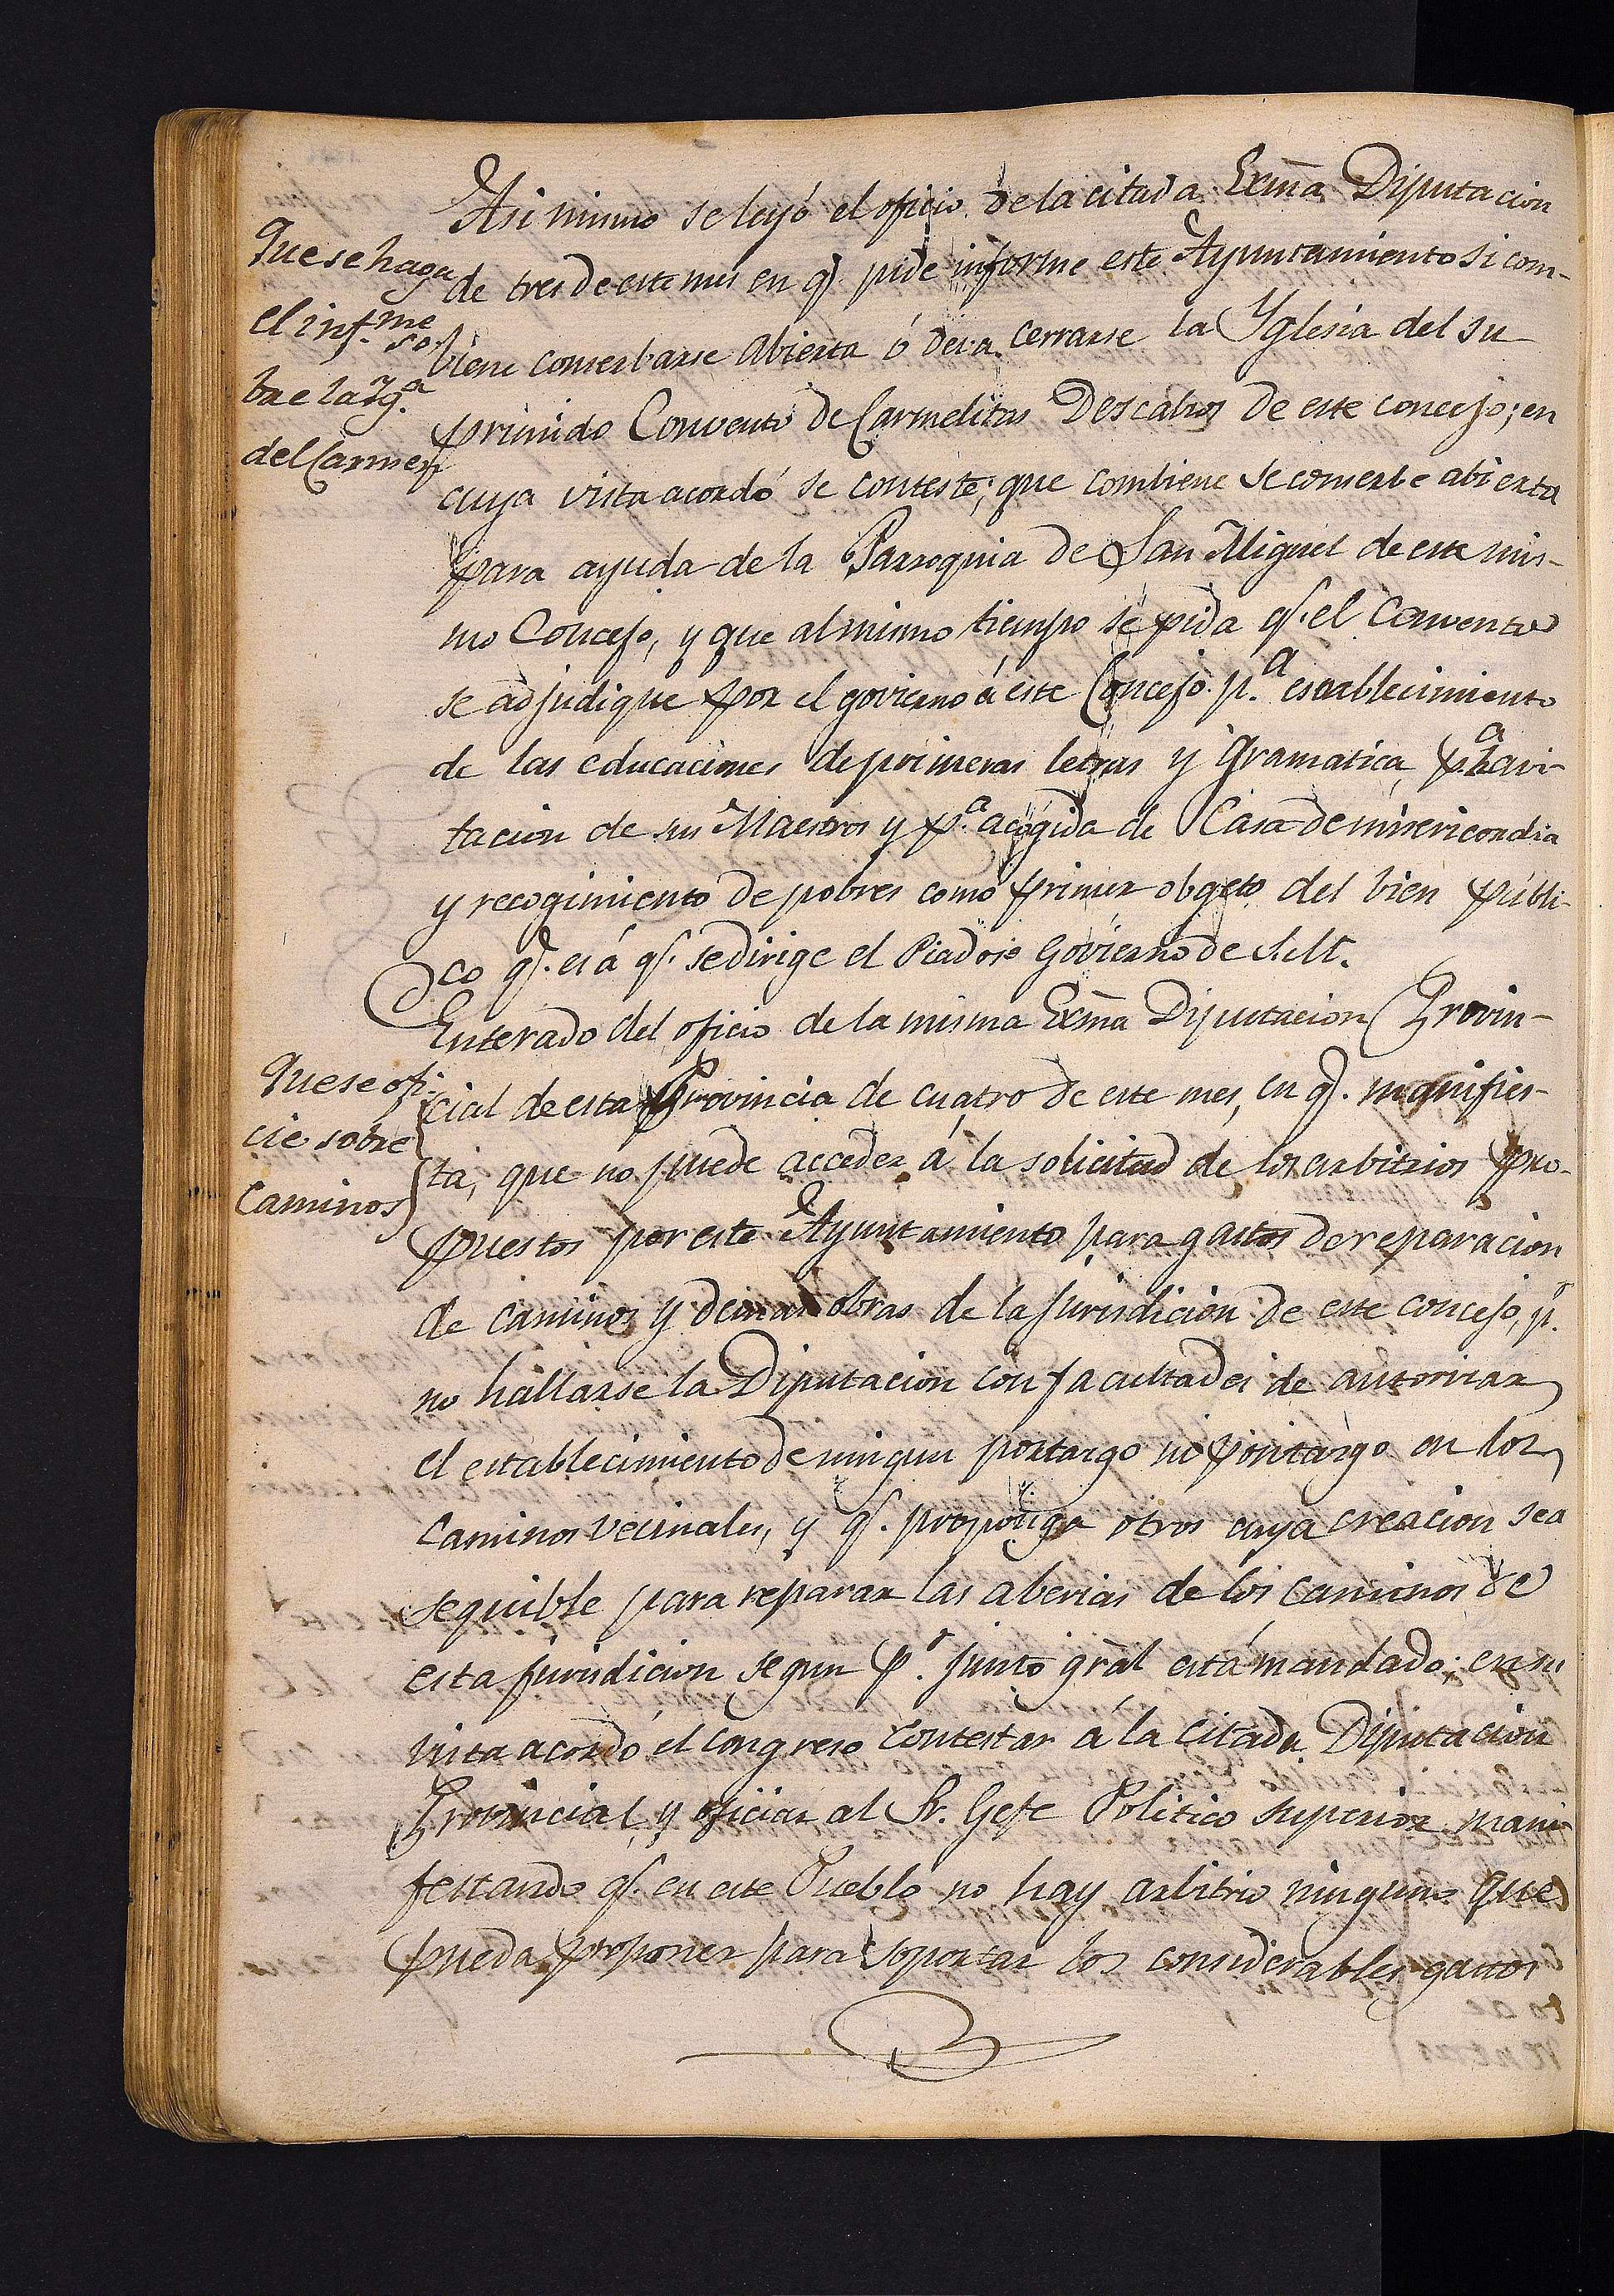 Asi mismo se leyó el oficio de la citada Exma Diputacion
Que se haga
el inf.me so
bre la Yg.a
del Carmen
de tres de este mes en q.e pide informe este Ayuntamiento si com-
biene conserbarse abierta ó deva cerrarse la Yglesia del su
primido Convento de Carmelitas Descalzos de este concejo; en
cuya vista acordó se conteste; que combiene se conserbe abierta
para ayuda de la Parroquia de San Miguel de este mis-
mo Concejo, y que al mismo tiempo se pida q.e el Convento
se adjudique por el govierno á este Concejo p.a establecimiento
de las educaciones de primeras letras y Gramatica, p.a havi-
tacion de sus Maestros y p.a acogida de Casa de misericordia
y recogimiento de pobres como primer obgeto del bien públi-
co q.e es á q.e se dirige el Piadoso Govierno de S.M.
Enterado del oficio de la misma Exma Diputacion Provin-
Que se ofi-
cie sobre
Caminos
cial de esta Provincia de cuatro de este mes, en q.e manifies-
ta, que no puede acceder á la solicitud de los arbitrios pro-
puestos por este Ayuntamiento para gastos de reparacion
de caminos y demas obras de la jurisdicion de este concejo, p.r
no hallarse la Diputacion con facultades de autorizar
el establecimiento de ningun portazgo ni pontazgo en los
Caminos vecinales, y q.e proponga otros cuya creacion sea
sequible para reparar las aberias de los caminos de
esta jurisdicion segun p.r punto gral está mandado; en su
vista acordó el congreso contestar á la citada Diputacion
Provincial, y oficiar al Sr. Gefe Politico Superior mani-
festando q.e en este Pueblo no hay arbitrio ninguno que
pueda proponer para soportar los considerables gastos